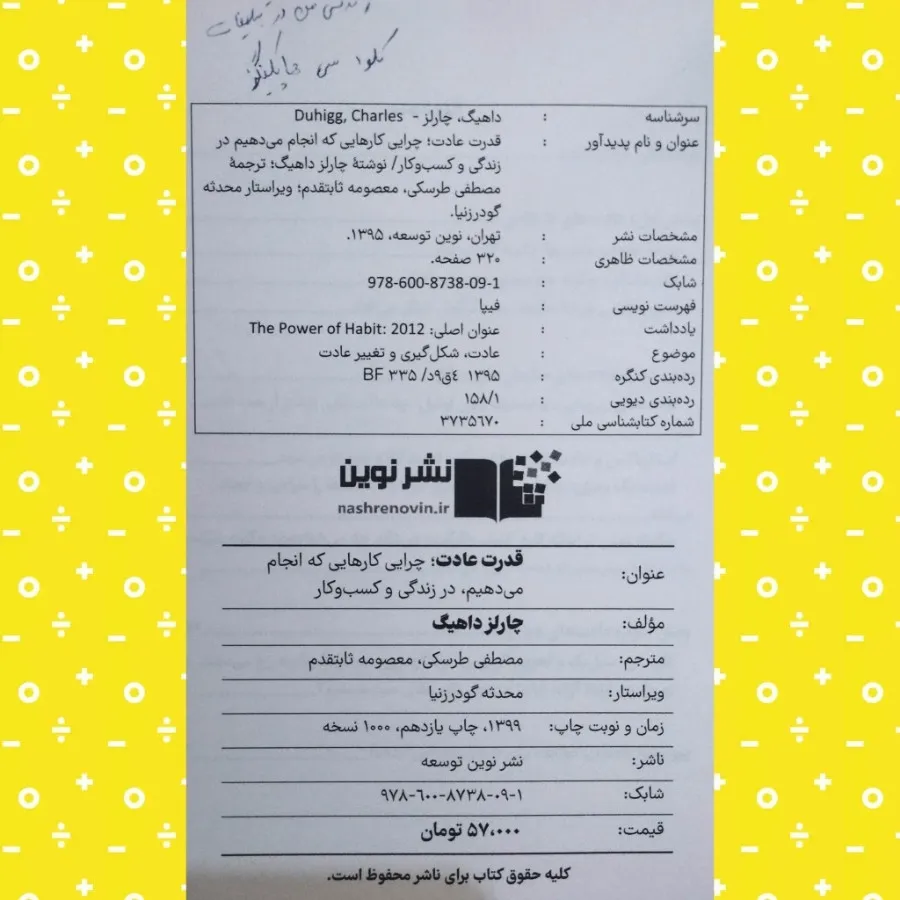 زندگی من در تبلیغات
کلود سی هاپکینگز
سرشناسه : داهیگ، چارلز - Duhigg, Charles
عنوان و نام پدیدآور : قدرت عادت؛ چرایی کارهایی که انجام می‌دهیم در
زندگی و کسب‌وکار/ نوشتهٔ چارلز داهیگ؛ ترجمهٔ
مصطفی طرسکی، معصومه ثابتقدم؛ ویراستار محدثه
گودرزنیا.
مشخصات نشر : تهران، نوین توسعه، ۱۳۹۵.
مشخصات ظاهری : ۳۲۰ صفحه.
شابک : 978-600-8738-09-1
فهرست نویسی : فیپا
یادداشت : عنوان اصلی: The Power of Habit: 2012
موضوع : عادت، شکل‌گیری و تغییر عادت
رده‌بندی کنگره : ۱۳۹۵ ٤ق۹د/ BF ۳۳۵
رده‌بندی دیویی : ۱۵۸/۱
شماره کتابشناسی ملی : ۳۷۳۵٦۷۰
نشر نوین
nashrenovin.ir
عنوان: قدرت عادت؛ چرایی کارهایی که انجام
می‌دهیم، در زندگی و کسب‌وکار
مؤلف: چارلز داهیگ
مترجم: مصطفی طرسکی، معصومه ثابتقدم
ویراستار: محدثه گودرزنیا
زمان و نوبت چاپ: ۱۳۹۹، چاپ یازدهم، ۱۰۰۰ نسخه
ناشر: نشر نوین توسعه
شابک: ۹۷۸-۶۰۰-۸۷۳۸-۰۹-۱
قیمت: ۵۷،۰۰۰ تومان
کلیه حقوق کتاب برای ناشر محفوظ است.